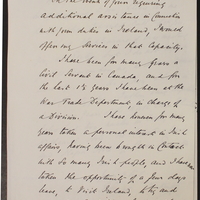 In the event of your requiring
additional assistance in connection
with your duties in Ireland, I would
offer my services in that capacity.
I have been for many years a
Civil Servant in Canada, and for
the last 1½ years I have been at the
War Trade Department, in charge of
a Division. I have known for many
years taken a personal interest in Irish
affairs, having been brought in contact
with so many Irish people, and I have
taken the opportunity of a few days
leave, to visit Ireland, to try and